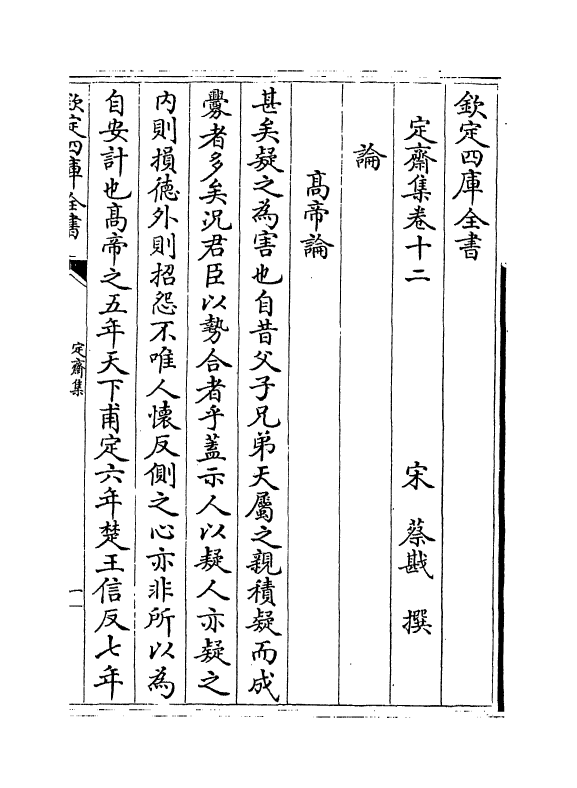 欽定四庫全書
定齋集卷十二
宋 蔡戡 撰
論
髙帝論
甚矣疑之為害也自昔父子兄弟天屬之親積疑而成
釁者多矣况君臣以勢合者乎葢示人以疑人亦疑之
内則損徳外則招怨不唯人懷反側之心亦非所以為
自安計也髙帝之五年天下甫定六年楚王信反七年
欽定四庫全書
定齋集
一